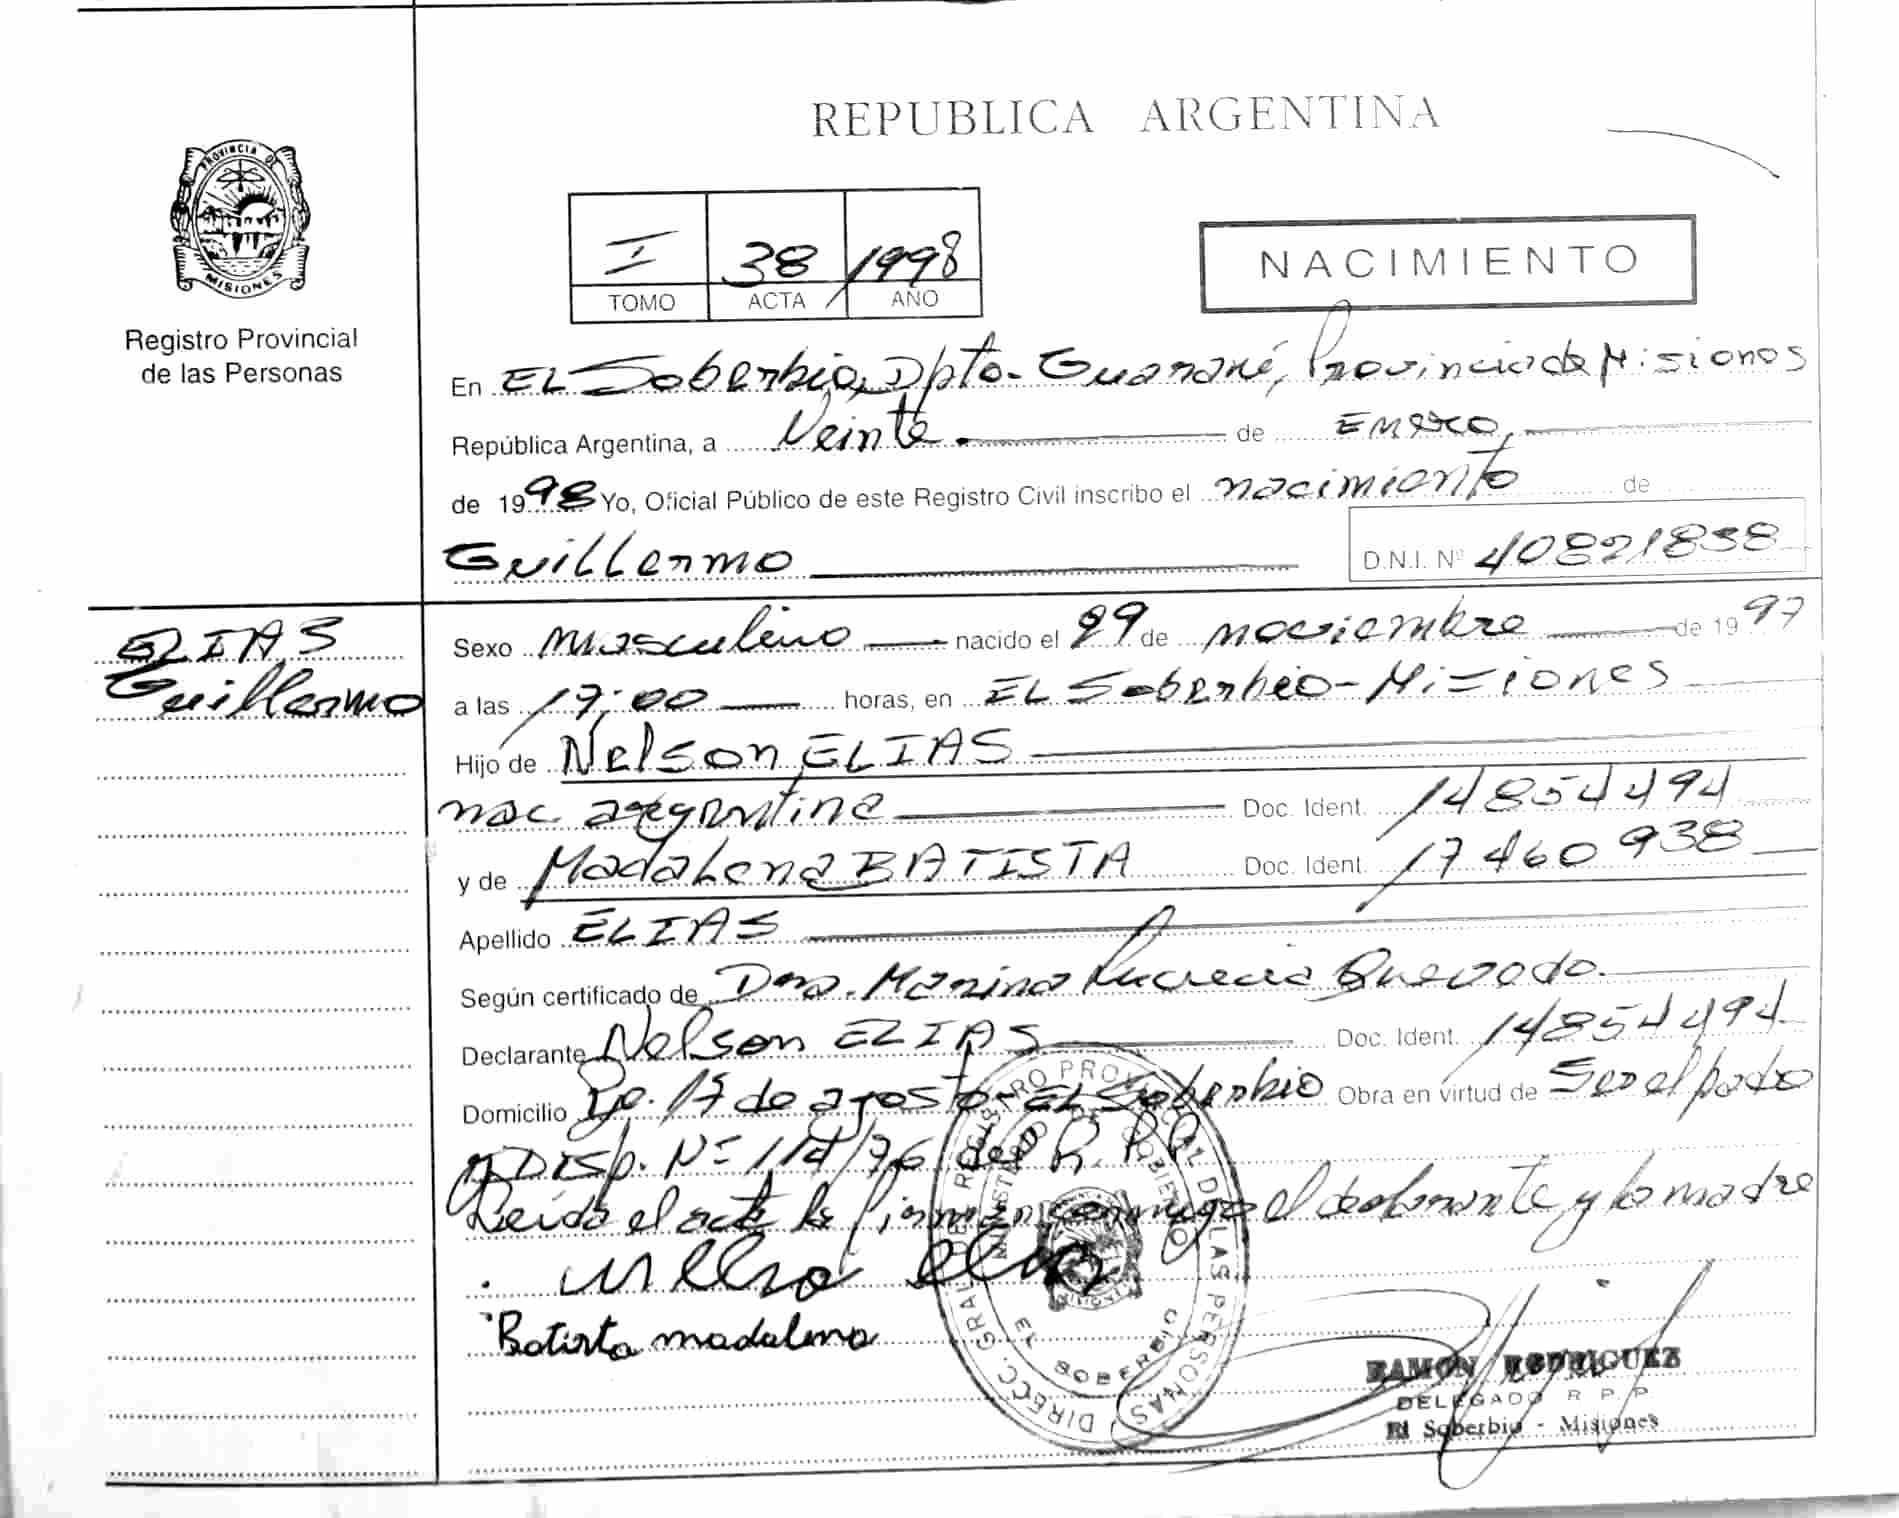 REPUBLICA ARGENTINA
PROVINCIA DE
MISIONES
Registro Provincial
de las Personas
I 38 1998
TOMO ACTA AÑO
NACIMIENTO
En EL Soberbio, Dpto. Guaraní, Provincia de Misiones
República Argentina, a Veinte de Enero,
de 1998 Yo, Oficial Público de este Registro Civil inscribo el nacimiento de
Guillermo
D.N.I. Nº 40821838
ELIAS
Guillermo
Sexo Masculino nacido el 29 de noviembre de 1997
a las 17:00 horas, en EL Soberbio - Misiones
Hijo de Nelson ELIAS
nac. argentina Doc. Ident. 14854494
y de Madalena BATISTA Doc. Ident. 17460938
Apellido ELIAS
Según certificado de Dra. Marina Lucrecia Quevedo.
Declarante Nelson ELIAS Doc. Ident. 14854494
Domicilio 17 de agosto - EL Soberbio Obra en virtud de Ser el padre
Disp. Nº 114/76 del R. P. P.
Leída el acta la firman conmigo el declarante y la madre
Batista madalena
DIRECC. GRAL. DEL REGISTRO PROVINCIAL DE LAS PERSONAS
MINISTERIO DE GOBIERNO
EL SOBERBIO
MISIONES
RAMON RODRIGUEZ
DELEGADO R P P
El Soberbio - Misiones